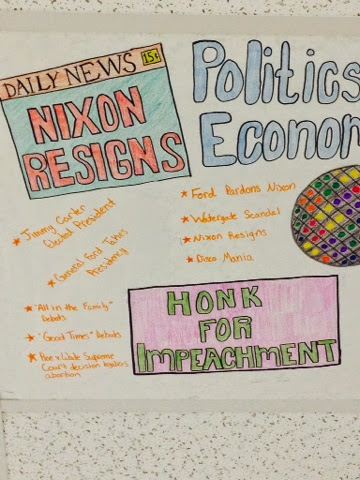 DAILY NEWS 15¢
NIXON
RESIGNS
Politics
Econom
Jimmy Carter
Elected President
General Ford Takes
Presidency
"All in the Family"
Debuts
"Good Times" Debuts
Roe v. Wade Supreme
Court decision
abortion
Ford Pardons Nixon
Watergate Scandal
Nixon Resigns
Disco Mania
HONK
FOR
IMPEACHMENT